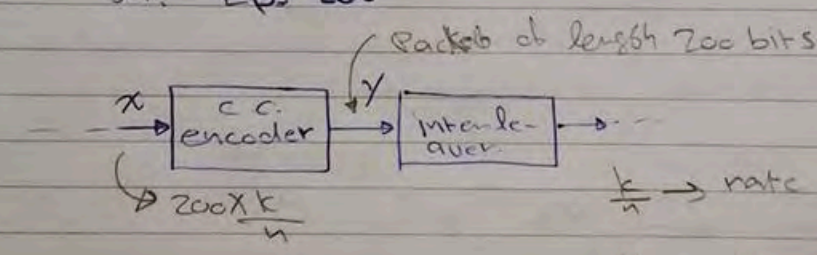 Packets of length 200 bits
x
C C.
encoder
y
Interle-
aver.
200 x k/n
k/n → rate